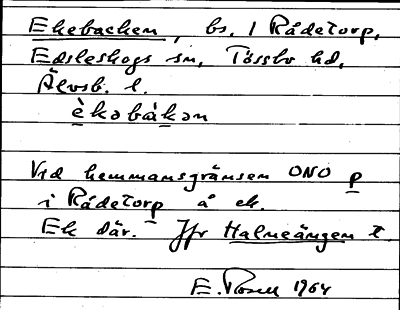 Ekebacken, bs. / Rådetorp,
Edsleskogs sn, Tössbo hd,
Älvsb. l.
èkəbàkən
Vid hemmansgränsen ONO p
i Rådetorp å ek.
Ek där. Jfr Halneängen t.
E. Rosell 1964